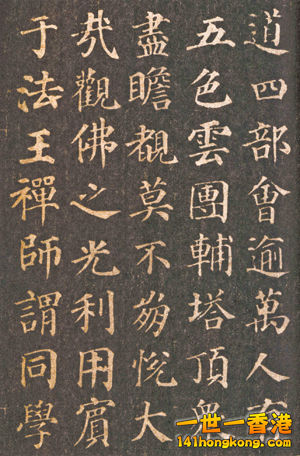 道四部會逾萬人有
五色雲團輔塔頂眾
盡瞻覩莫不崩悅大
哉觀佛之光利用賓
于法王禪師謂同學
一世一香港
141hongkong.com